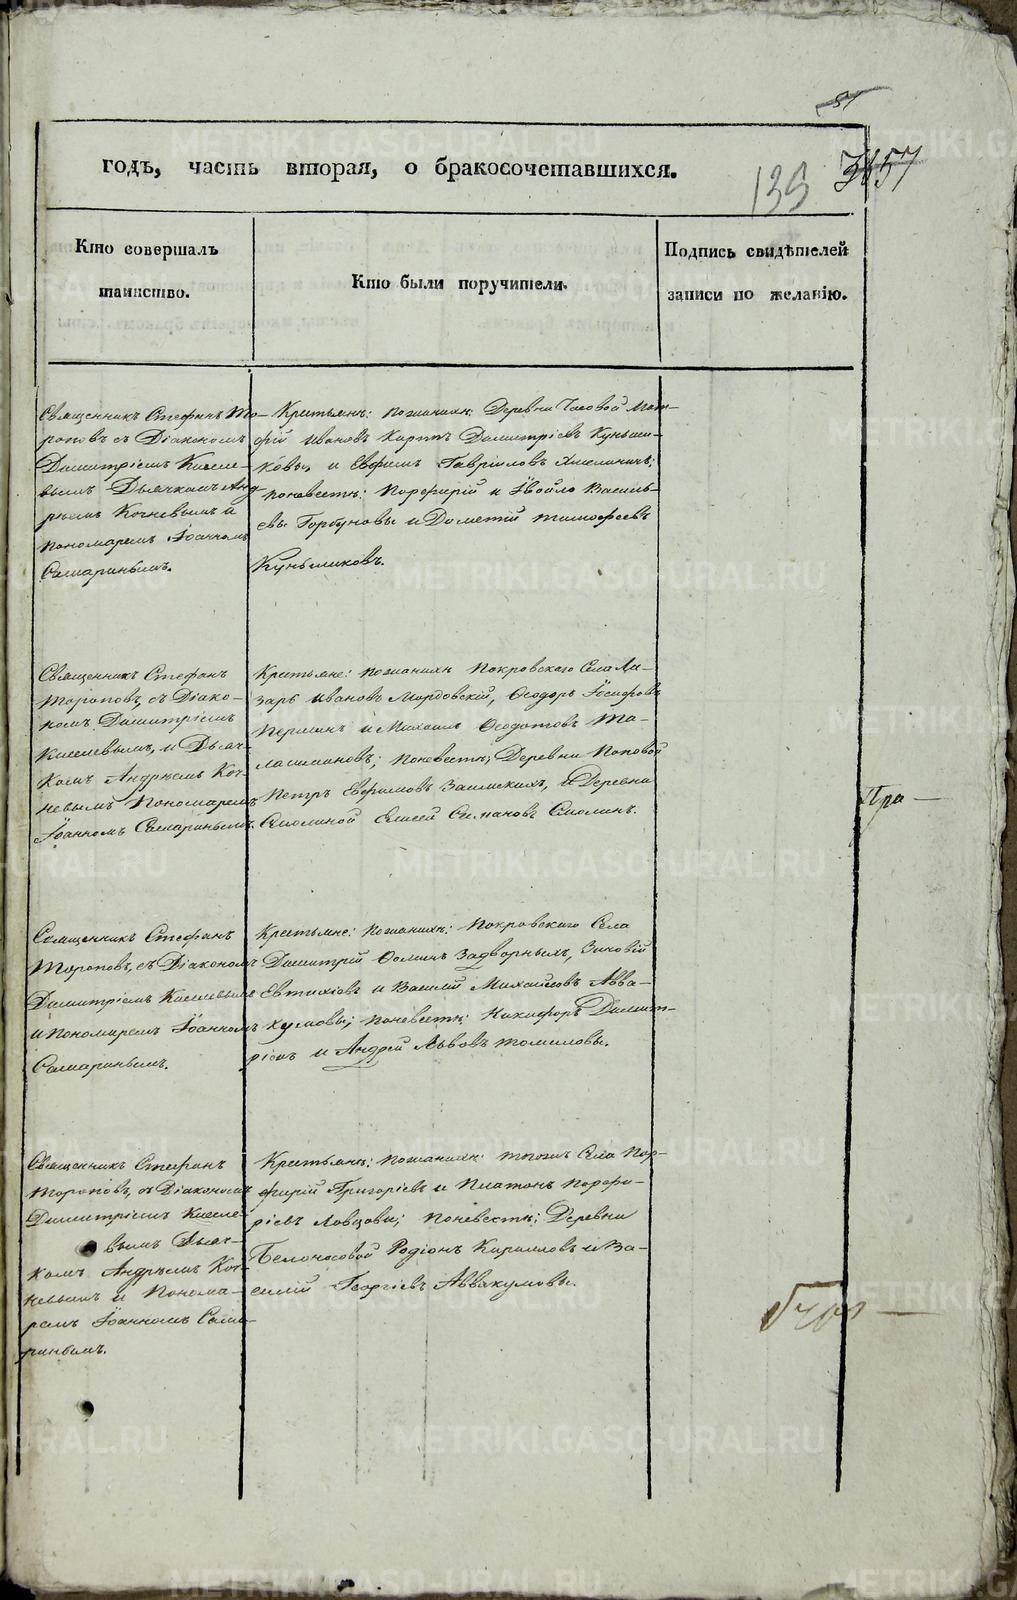 годъ, часть вторая, о бракосочетавшихся.
139
57
Кто совершалъ
таинство.
Кто были поручители.
Подпись свидѣтелей
записи по желанію.
Священникъ Стефанъ То-
роповъ съ Діакономъ
Димитріемъ Киселе-
вымъ Дьячкомъ Анд-
реемъ Кочневымъ и
пономаремъ Іоанномъ
Самаринымъ.
Крестьяне: пожених: Деревни Часовой Мат-
фій Ивановъ Карпъ Димитріевъ Куньши-
ковы, и Евфимъ Гавріиловъ
поневестѣ: Порфирій и Василь-
евы Горбуновы и Дометій тимофеевъ
Куньшиковъ.
Священникъ Стефанъ
Тороповъ, съ Діако-
номъ Димитріемъ
Киселевымъ, и Дьяч-
комъ Андреемъ Коч-
невымъ Пономаремъ
Іоанномъ Самаринымъ.
Крестьяне: поженихѣ Покровскаго Села Ла-
зарь Ивановъ Мордовскій, Ѳеодоръ Іосифовъ
Перминъ и Михаилъ Ѳеодотовъ Та-
лашмановъ; поневестѣ; Деревни Поповой
Петръ Ефимовъ Заимскихъ, и Деревни
Смолиной Елисей Степановъ Смолинъ.
Священникъ Стефанъ
Тороповъ, съ Діакономъ
Димитріемъ Киселевымъ
и Пономаремъ Іоанномъ
Самаринымъ.
Крестьяне: поженихѣ: Покровскаго Села
Димитрій Ѳоминъ Задворныхъ, Зиновій
Евтихіевъ и Василій Михайловъ Авва-
кумовы; поневестѣ; Никифоръ Димит-
ріевъ и Андрей Львовъ томиловы.
Священникъ Стефанъ
Тороповъ, съ Діакономъ
Димитріемъ Киселе-
вымъ Дьяч-
комъ Андреемъ Коч-
невымъ и Понома-
ремъ Іоанномъ Сама-
ринымъ.
Крестьяне; поженихѣ: тогожъ Села Пор-
фирій Григоріевъ и Платонъ Порфи-
ріевъ Ловцовы; поневестѣ; Деревни
Белоносовой Родіонъ Кириловъ и Ва-
силій Георгіевъ Аввакумовы.
METRIKI.GASO-URAL.RU